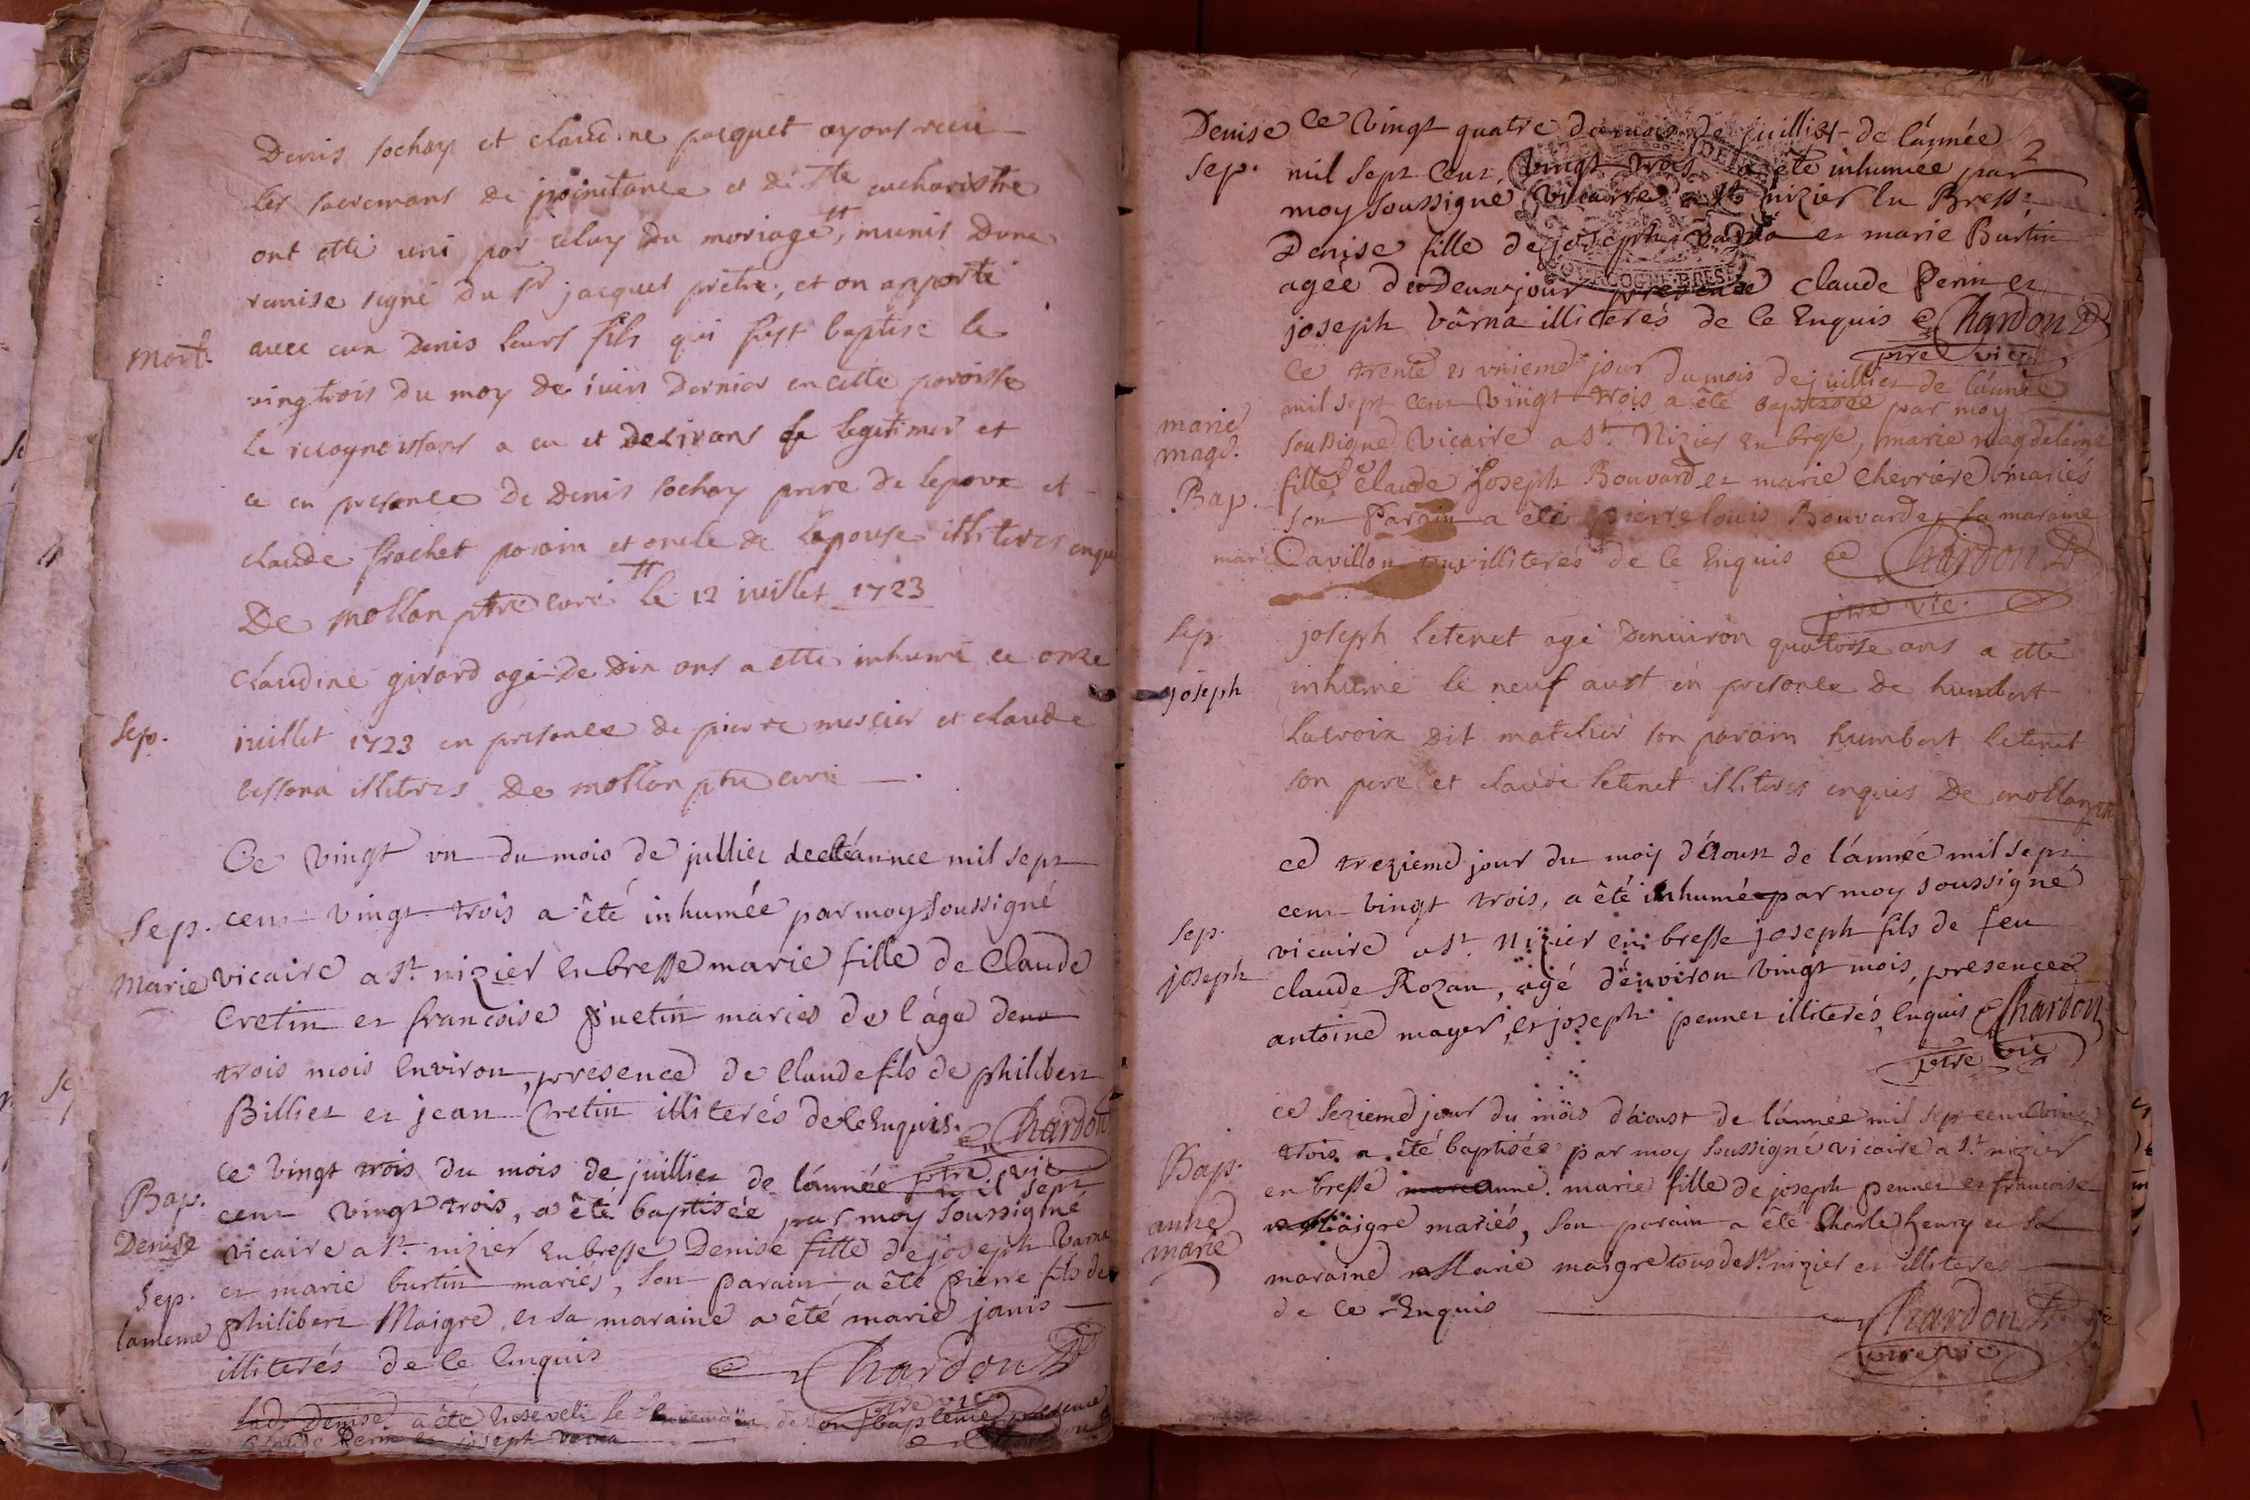 Denis sochay et claudine pacquet ayont receu
les sacremans de poenitance et de Ste eucharistie
ont etté uni par celuy du mariage, munis dune
remise signé du Sr jacquet prêtre, et on apporté
Mort. avec eux Denis leurs fils qui fust baptise le
vingtrois du moy de iuin dernier en cette paroisse
le recognoissans a eu et desirans le legitimer et
ce en presance de Denis sochay pere de lepoux et
claude frachet parain et oncle de lepouse illiteres enquis
De mollan ptre curé le 12 iuillet 1723
claudine girard agé de Dix ans a etté inhumé ce onze
Sep. iuillet 1723 en presance de pierre mercier et claude
illiteres De mollan ptre curé
Ce vingt un du mois de juillier de l'année mil sept
Sep. cent vingt trois a été inhumée par moy soussigné
Marie vicaire a St. nizier en bresse marie fille de Claude
Cretin et francoise putin mariés de l'áge de
trois mois environ, presence de Claude fils de philibert
Billiet et jean Cretin illiterés de ce Enquis. Chardon
ptre vic
Ce vingt trois du mois de juillier de l'année mil sept
Bap. cent vingt trois, a été baptisée par moy soussigné
Denise vicaire a St. nizier en bresse Denise fille de joseph Varna
Sep. et marie burtin mariés, son parain a été pierre fils de
lameme philibert Maigre et sa maraine a été marie janis
illiterés de ce Enquis
Chardon
ptre vic
lad. Denise a été ensevely le lendemain de son baptême presence
claude Perin et joseph varna
2
Denise Ce vingt quatre du mois de juilliet de l'année
Sep. mil sept cent vingt trois a été inhumée par
moy soussigné vicaire a St nizier en Bresse
Denise fille de joseph Varna et marie Burtin
agée de deux jour presence claude Perin et
joseph Varna illiterés de ce Enquis Chardon
ptre vic
Ce trente et unieme jour du mois de juillier de l'année
mil sept cent vingt trois a été baptisée par moy
marie soussigné vicaire a St. Nizier en bresse, marie magdelaine
magd. fille Claude joseph Bouvard et marie Chevriere mariés
Bap. son Parain a été pierre louis Bouvard et sa maraine
mari Davillon tous illiterés de ce Enquis Chardon
ptre vic.
Sep. joseph letenet agé Denviron quatorse ans a etté
joseph inhumé le neuf aust en presance de humbert
lacroix dit matelier son parain humbert letenet
son pere et claude letenet illiteres enquis De mollan ptre
ce trezieme jour du moy d'Aoust de l'année mil sept
cent vingt trois, a été inhumé par moy soussigné
Sep. vicaire a St. Nizier en bresse joseph fils de feu
joseph claude Rozan, agé d'environ vingt mois, presence
antoine mayer, et joseph pennet illiterés, Enquis Chardon
ptre vic
ce sezieme jour du mois d'aoust de l'année mil sept cent vingt
trois a été baptisée par moy soussigné vicaire a St. nizier
Bap. en bresse anne. marie fille de joseph pennet et francoise
anne Maigre mariés, son parain a été Charle henry et sa
marie maraine Marie maigre tous de St. nizier et illiteres
de ce Enquis
Chardon
ptre vic